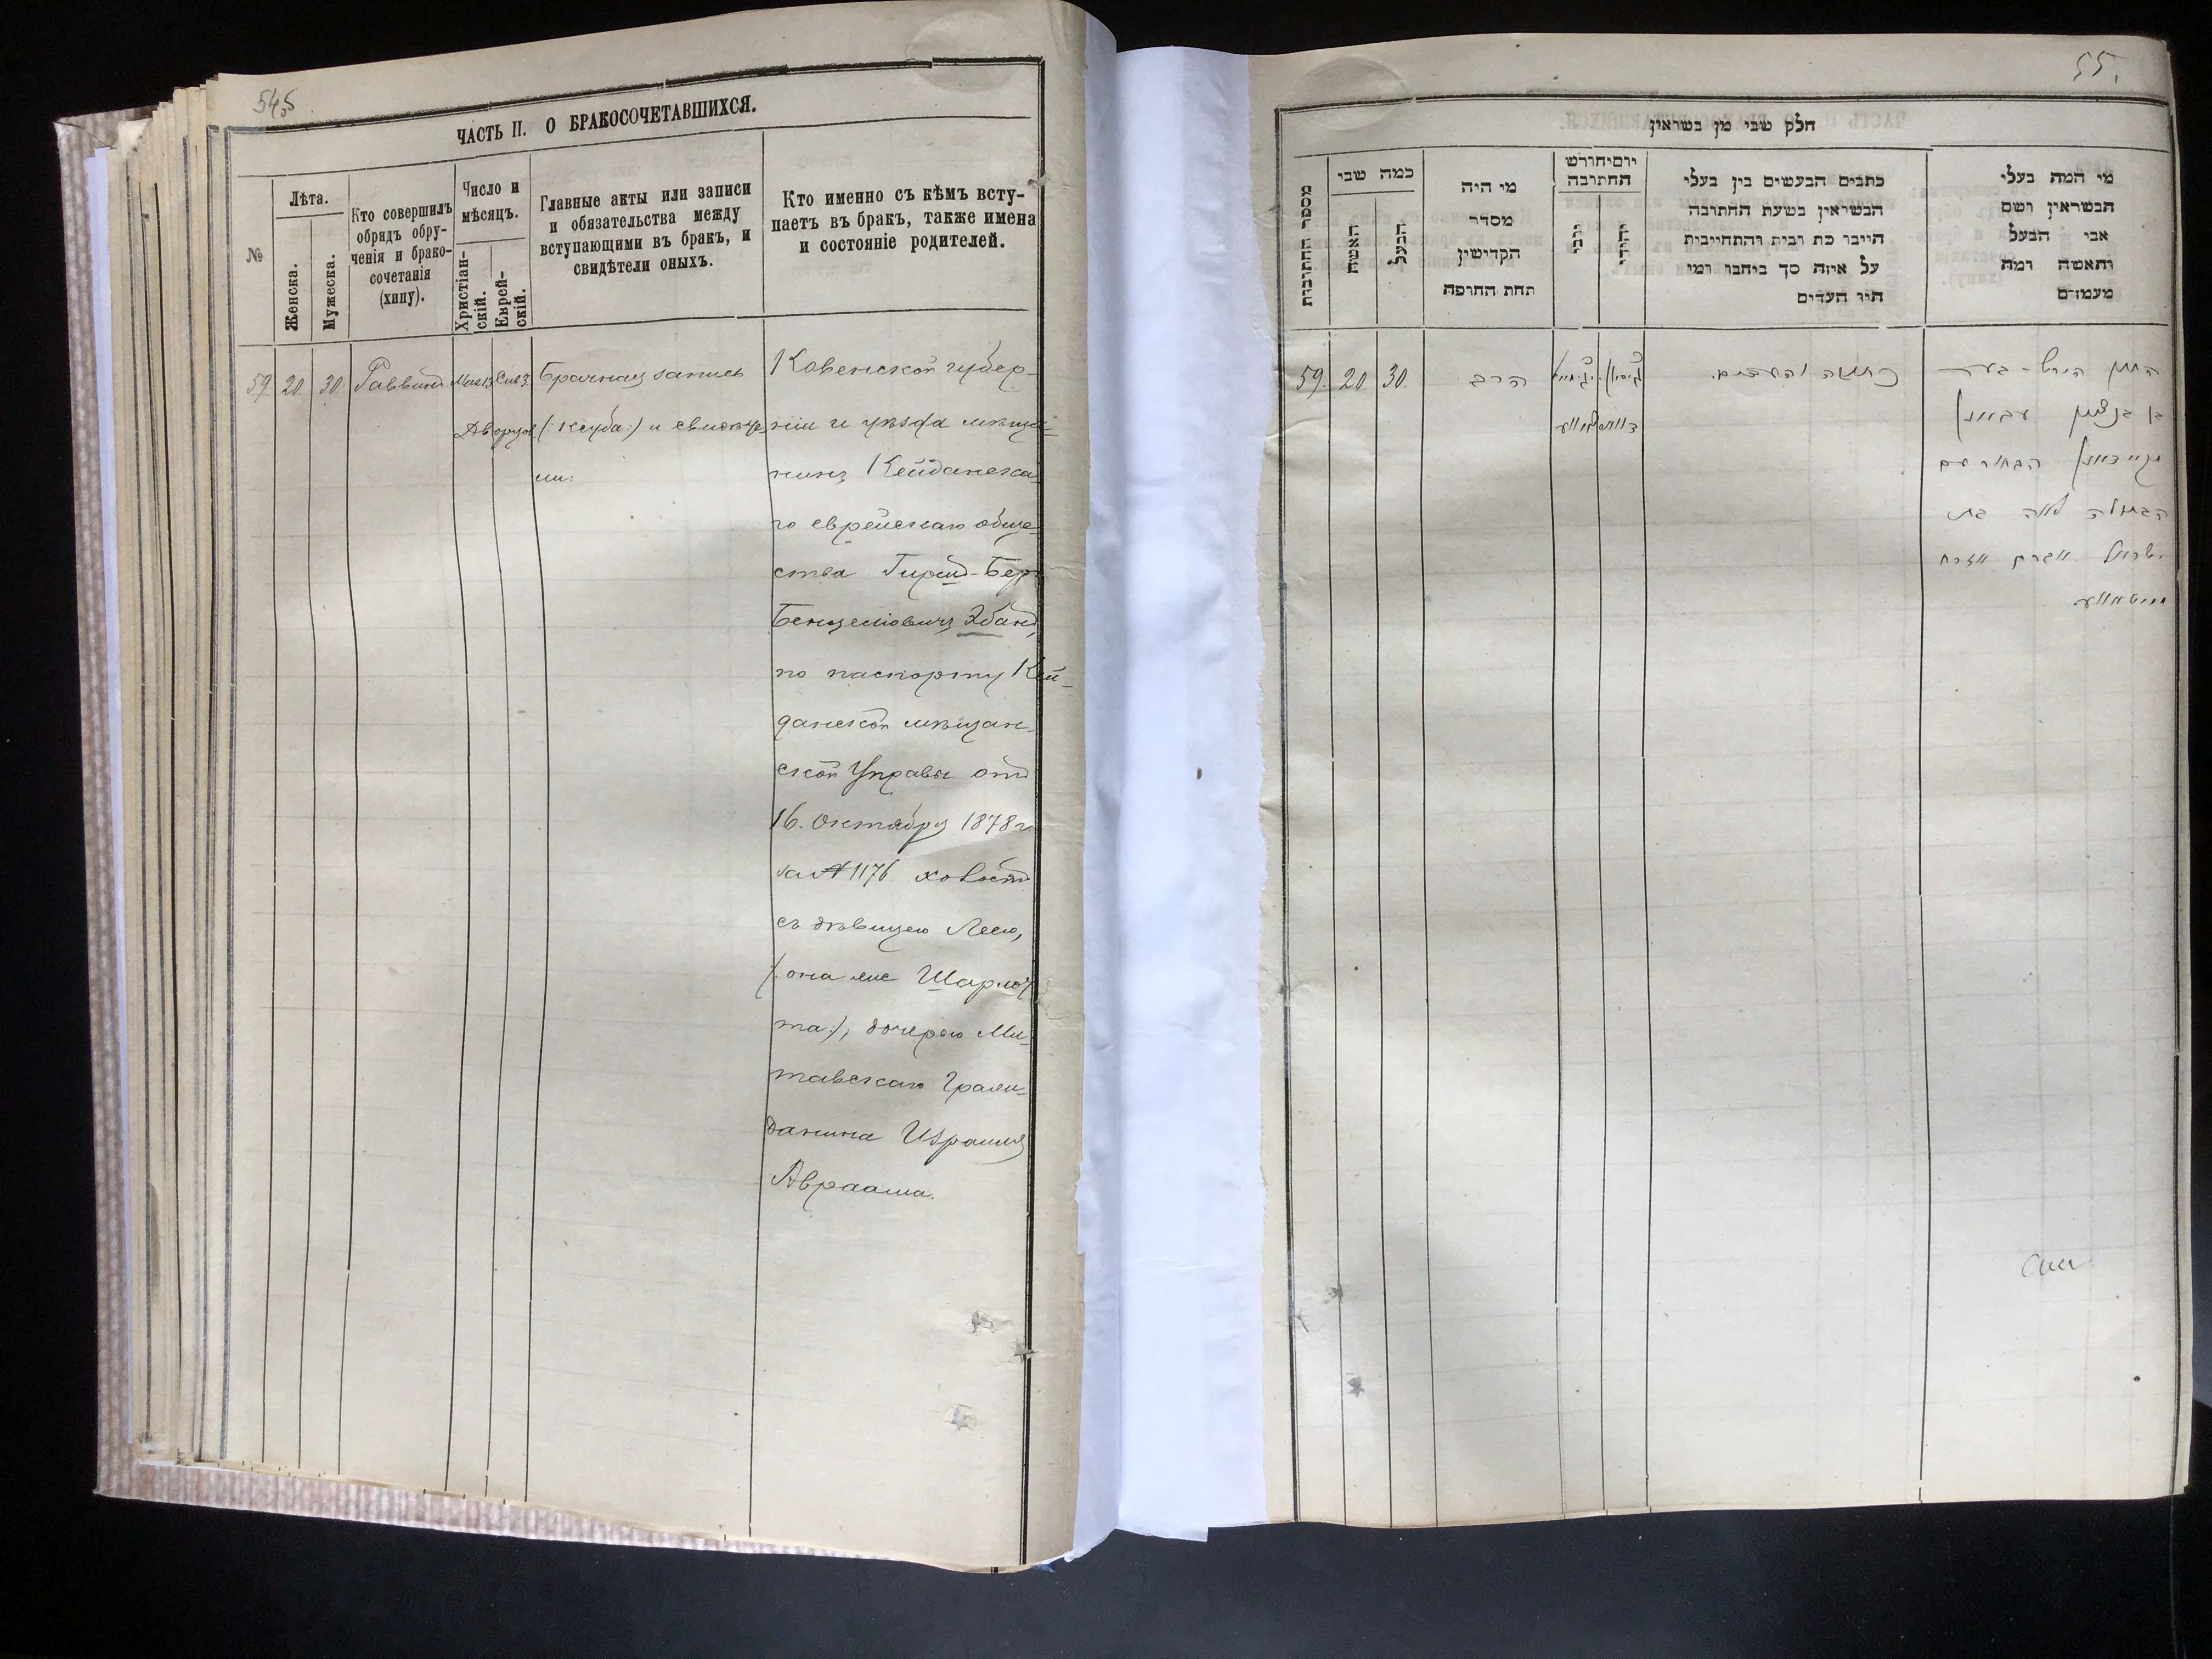 545
ЧАСТЬ II. О БРАКОСОЧЕТАВШИХСЯ.
№
Лѣта.
Женска.
Мужеска.
Кто совершилъ
обрядъ обру-
ченія и брако-
сочетанія
(хипу).
Число и
мѣсяцъ.
Христіан-
скій.
Еврей-
скій.
Главные акты или записи
и обязательства между
вступающими въ бракъ, и
свидѣтели оныхъ.
Кто именно съ кѣмъ всту-
паетъ въ бракъ, также имена
и состояніе родителей.
59. 20. 30. Раввинъ
Брачная запись
(: Ксуба :) и свидѣте-
ли.
Ковенской губер-
ніи и уѣзда мѣща-
нинъ Кейданска-
го еврейскаго обще-
ства Гиршъ-Бер
по паспорту Кей-
данской мѣщан-
ской Управы отъ
16. Октября 1878 г.
за № 1176 холостъ
съ дѣвицею Леею,
(: она же Шарлот
та :), дочерью Ми-
тавскаго Граж-
данина Израиля
Авраама.
55.
חלק שני מן נשואין
מספר החתונות
כמה שני
האשה
הבעל
מי היה
מסדר
הקדישין
תחת החופה
יום וחודש
החתונה
נוצרי
יהודי
כתבים הנעשים בין בעלי
הנשואין בשעת החתונה
היינו כת ובית והתחייבות
על איזה סך ביחבו ומי
היו העדים
מי המה בעלי
הנשואין ושם
אבי הבעל
והאשה ומה
מעמדם
59. 20. 30. הרב
כתובה והעדים.
החתן הירש-בער
הבתולה לאה בת